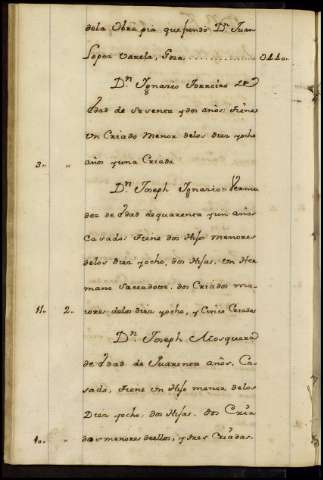 dela Obra pia que fundò Dn. Juan
Lopez Varela, Goza ......... 044..
Dn. Ignacio Forreiro de
Edad de Sesenta y dos años: tiene
Un Criado Menor delos diez y ocho
3.. .. años y una Criada
Dn. Joseph Ignacio Vermu
dez de Edad de quarenta y un años
Casado tiene dos Hijos menores
delos diez y ocho, dos Hijas, Un Her
mano Sacerdote, dos Criados ma
11.. 2.. iores delos diez y ocho, y Cinco Criadas
Dn. Joseph Mosquera
de Edad de Quarenta años, Ca
sado, tiene un Hijo menor delos
Diez y ocho, dos Hijas, dos Cria
.. dos menores de ellos, y tres Criadas.